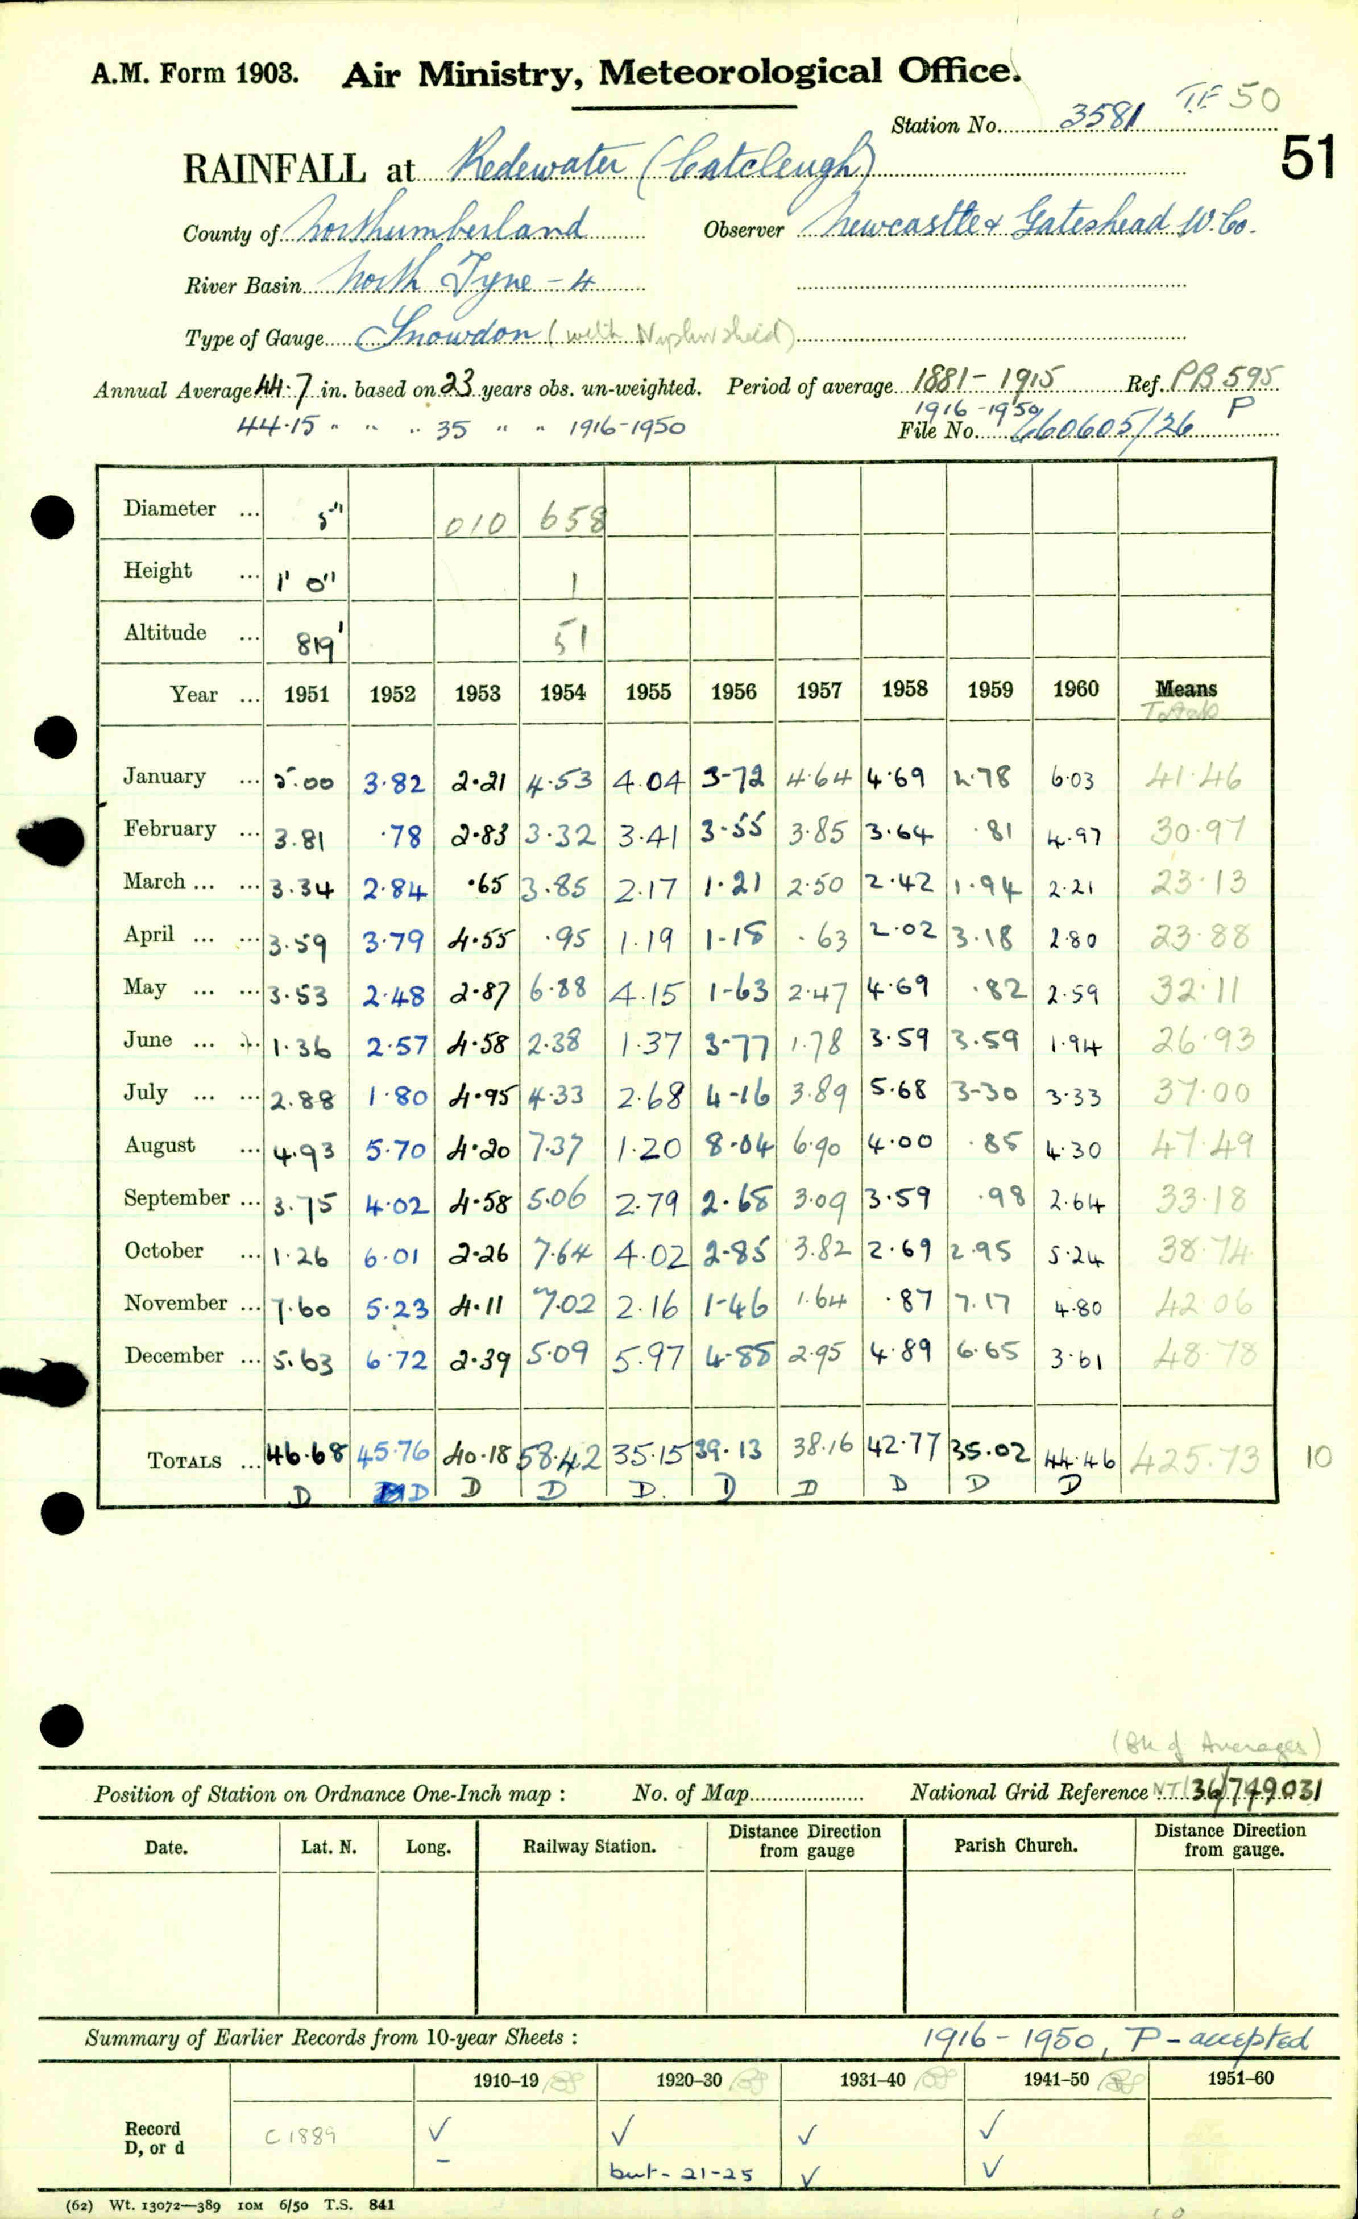 A.M. Form 1903. Air Ministry, Meteorological Office.
Station No. 3581 TF 50
51
RAINFALL at Redewater (Catcleugh)
County of Northumberland Observer Newcastle & Gateshead W. Co.
River Basin North Tyne - 4
Type of Gauge Snowdon (with Nipher Shield)
Annual Average 44.7 in. based on 23 years obs. un-weighted. Period of average 1881-1915 Ref. PB595
44.15 " " " 35 " " 1916-1950 1916-1950 P
File No. 660605/26
Diameter ... 5" 010 658
Height ... 1' 0" 1
Altitude ... 819' 51
Year ... 1951 1952 1953 1954 1955 1956 1957 1958 1959 1960 Means
Totals
January ... 5.00 3.82 2.21 4.53 4.04 3-72 4.64 4.69 2.78 6.03 41.46
February ... 3.81 .78 2.83 3.32 3.41 3-55 3.85 3.64 .81 4.97 30.97
March ... ... 3.34 2.84 .65 3.85 2.17 1.21 2.50 2.42 1.94 2.21 23.13
April ... ... 3.59 3.79 4.55 .95 1.19 1-18 .63 2.02 3.18 2.80 23.88
May ... ... 3.53 2.48 2.87 6.88 4.15 1-63 2.47 4.69 .82 2.59 32.11
June ... ... 1.36 2.57 4.58 2.38 1.37 3-77 1.78 3.59 3.59 1.94 26.93
July ... ... 2.88 1.80 4.95 4.33 2.68 4-16 3.89 5.68 3-30 3.33 37.00
August ... 4.93 5.70 4.20 7.37 1.20 8.04 6.90 4.00 .85 4.30 47.49
September ... 3.75 4.02 4.58 5.06 2.79 2.68 3.09 3.59 .98 2.64 33.18
October ... 1.26 6.01 2.26 7.64 4.02 2-85 3.82 2.69 2.95 5.24 38.74
November ... 7.60 5.23 4.11 7.02 2.16 1-46 1.64 .87 7.17 4.80 42.06
December ... 5.63 6.72 2.39 5.09 5.97 4-88 2.95 4.89 6.65 3.61 48.78
TOTALS ... 46.68 45.76 40.18 58.42 35.15 39.13 38.16 42.77 35.02 44.46 425.73 10
D D D D D. D D D D D
(Bk of Averages)
Position of Station on Ordnance One-Inch map : No. of Map National Grid Reference NT 36/749031
Date. Lat. N. Long. Railway Station. Distance from gauge Direction Parish Church. Distance from gauge. Direction
Summary of Earlier Records from 10-year Sheets : 1916-1950, P-accepted
1910-19 1920-30 1931-40 1941-50 1951-60
Record D, or d C 1889 ✓ ✓ ✓ ✓
- but - 21-25 ✓ ✓
(62) Wt. 13072—389 10M 6/50 T.S. 841